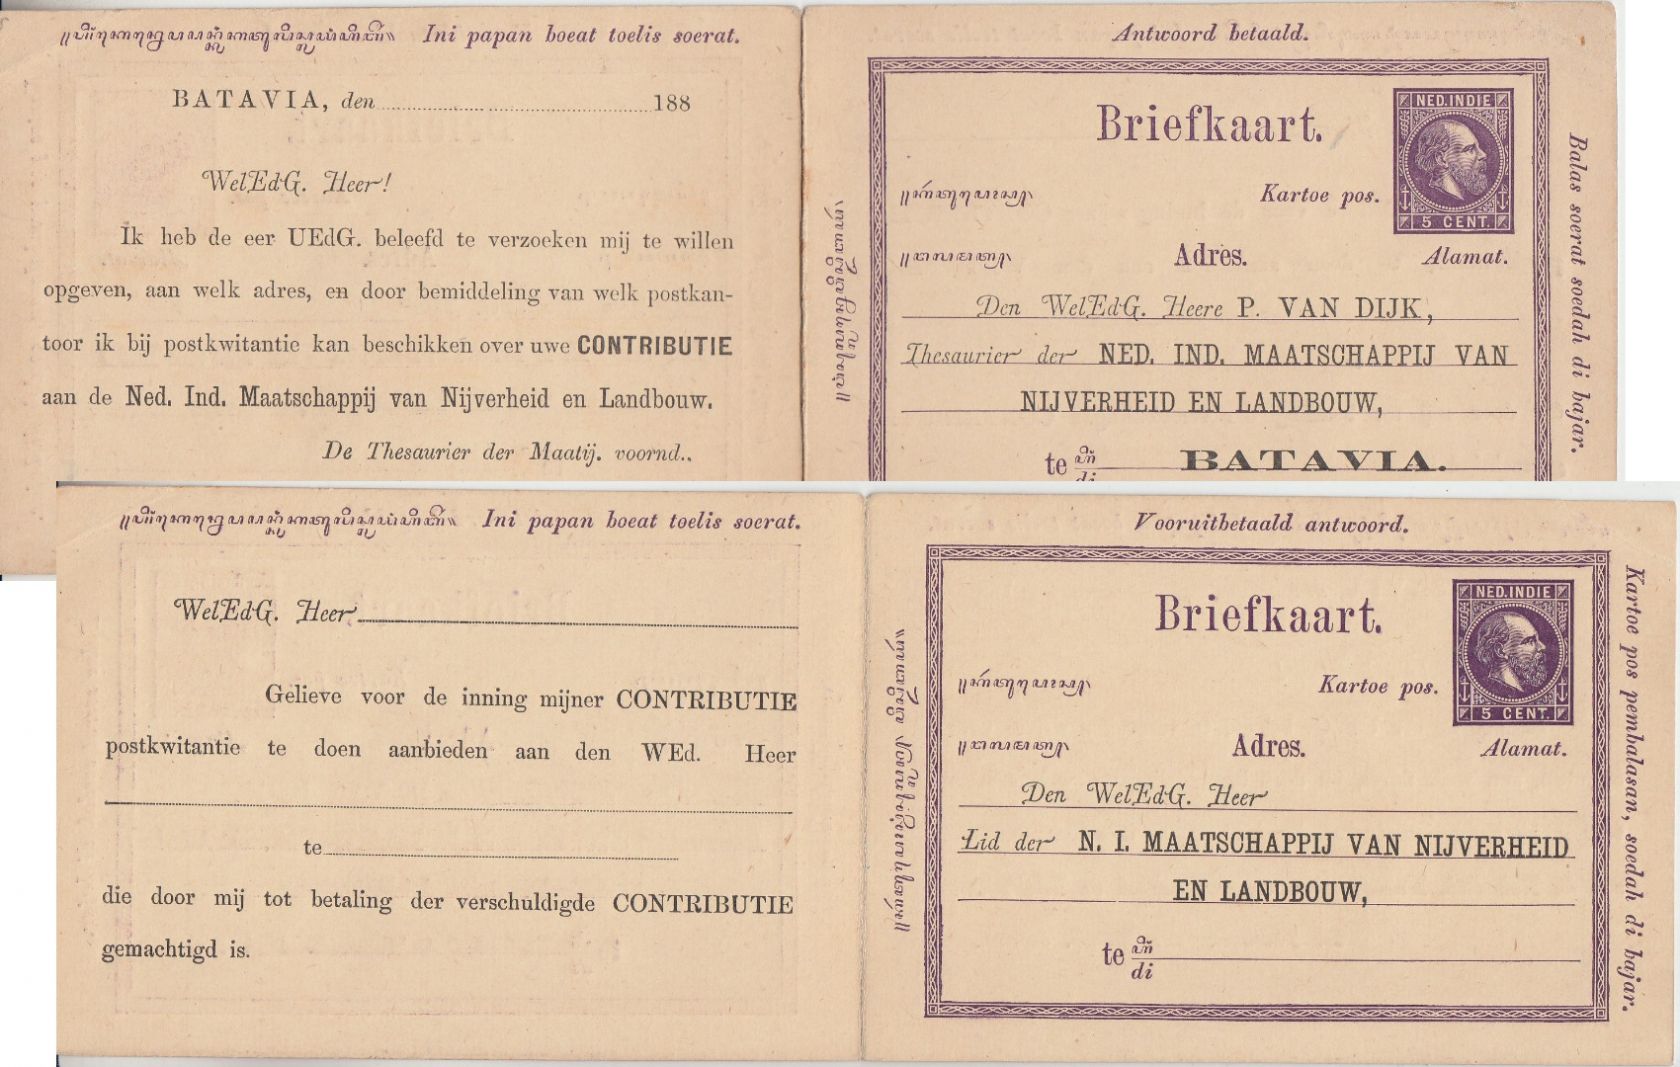 Ini papan boeat toelis soerat.
BATAVIA, den 188
WelEdG. Heer!
Ik heb de eer UEdG. beleefd te verzoeken mij te willen
opgeven, aan welk adres, en door bemiddeling van welk postkan-
toor ik bij postkwitantie kan beschikken over uwe CONTRIBUTIE
aan de Ned. Ind. Maatschappij van Nijverheid en Landbouw.
De Thesaurier der Maatij. voornd..
Antwoord betaald.
Briefkaart.
NED. INDIE
5 CENT.
Kartoe pos.
Adres. Alamat.
Den WelEdG. Heere P. VAN DIJK,
Thesaurier der NED. IND. MAATSCHAPPIJ VAN
NIJVERHEID EN LANDBOUW,
te di BATAVIA.
Balas soerat soedah di bajar.
Ini papan boeat toelis soerat.
WelEdG. Heer
Gelieve voor de inning mijner CONTRIBUTIE
postkwitantie te doen aanbieden aan den WEd. Heer
te
die door mij tot betaling der verschuldigde CONTRIBUTIE
gemachtigd is.
Vooruitbetaald antwoord.
Briefkaart.
NED. INDIE
5 CENT.
Kartoe pos.
Adres. Alamat.
Den WelEdG. Heer
Lid der N. I. MAATSCHAPPIJ VAN NIJVERHEID
EN LANDBOUW,
te di
Kartoe pos pembalasan, soedah di bajar.